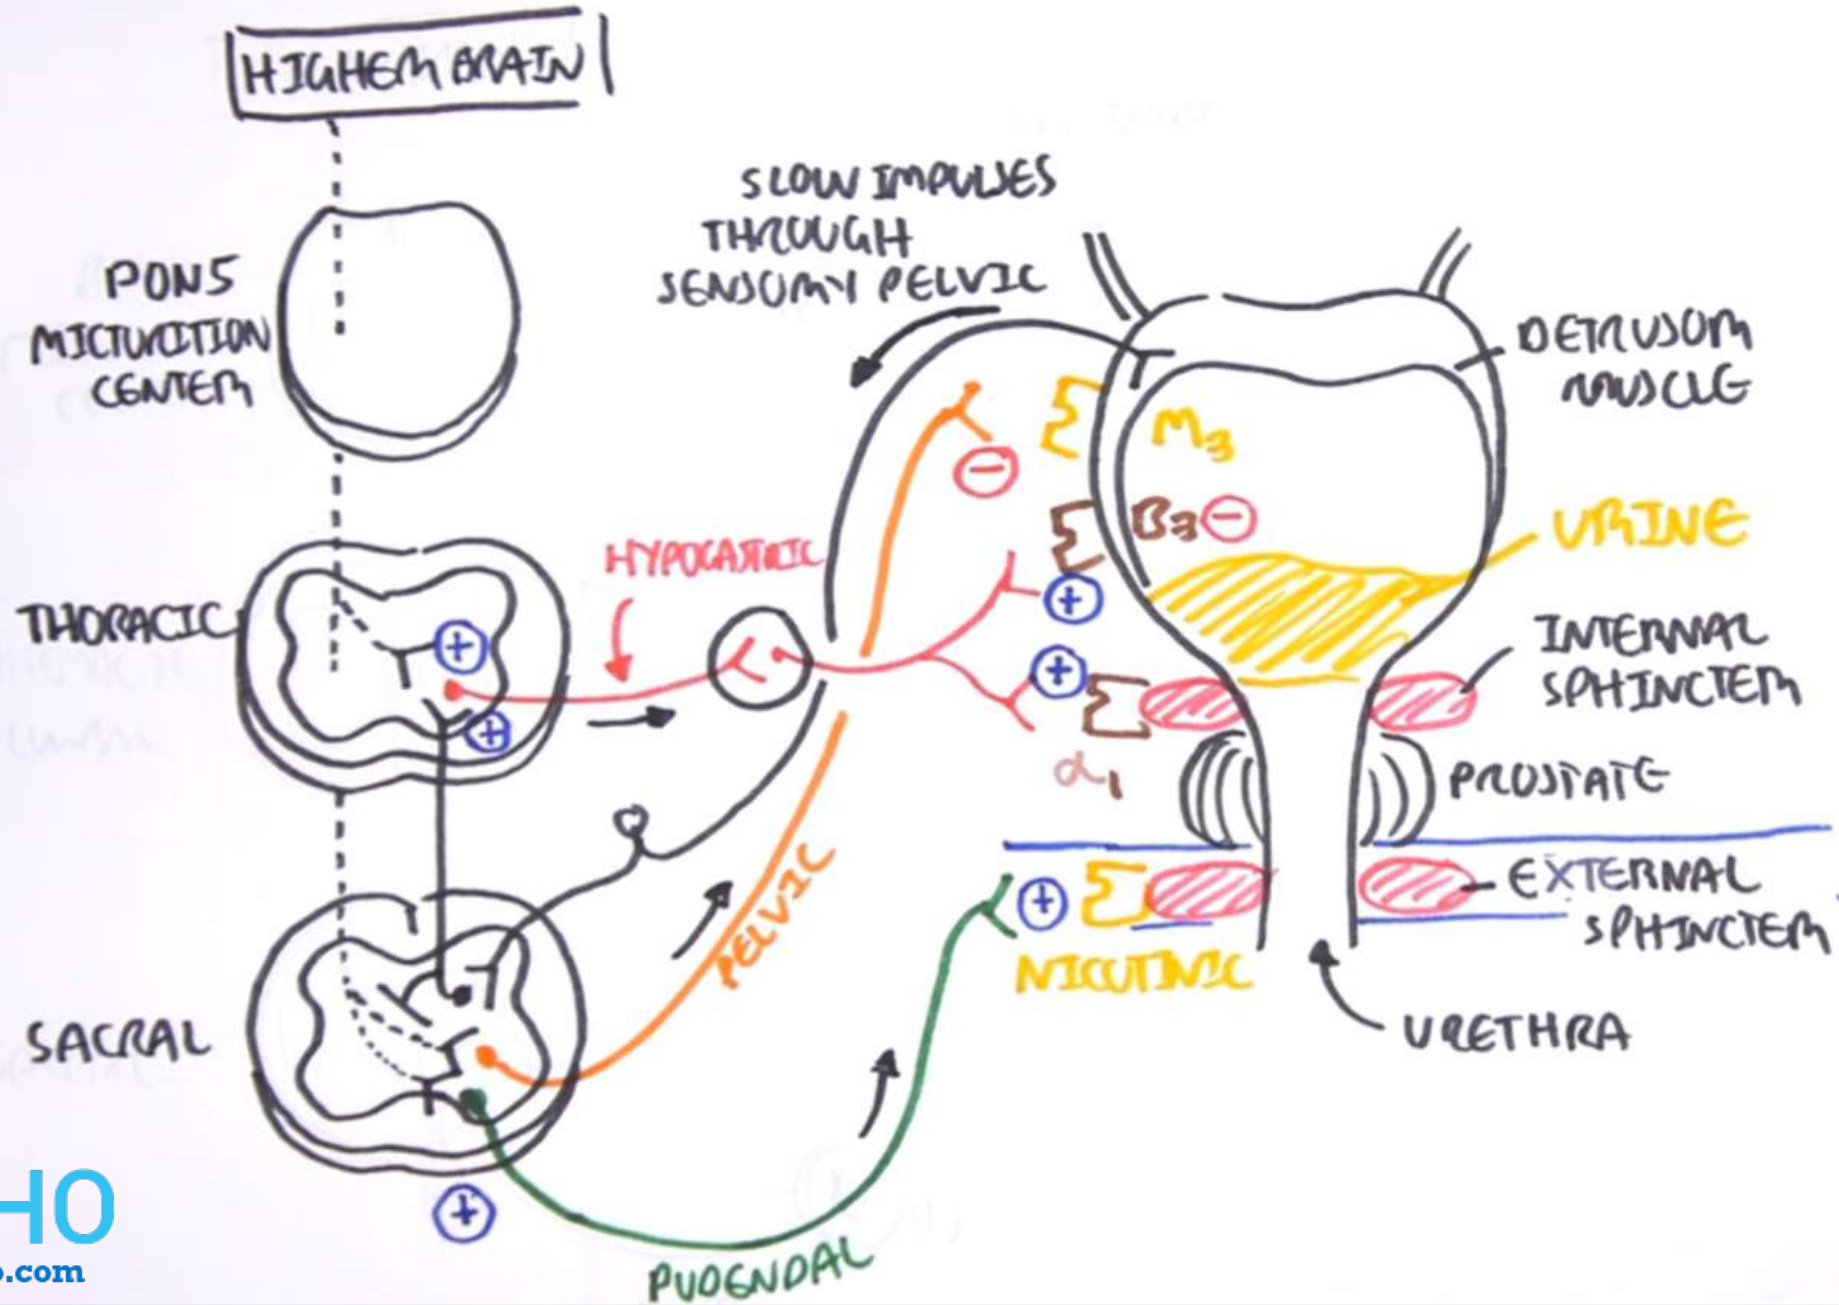 HIGHER BRAIN
PONS
MICTURITION
CENTER
SLOW IMPULSES
THROUGH
SENSORY PELVIC
DETRUSOR
MUSCLE
M3
B3 -
-
URINE
HYPOGASTRIC
THORACIC
+
+
+
+
INTERNAL
SPHINCTER
α1
PROSTATE
PELVIC
+
EXTERNAL
SPHINCTER
NICOTINIC
URETHRA
SACRAL
+
PUDENDAL
HO
o.com